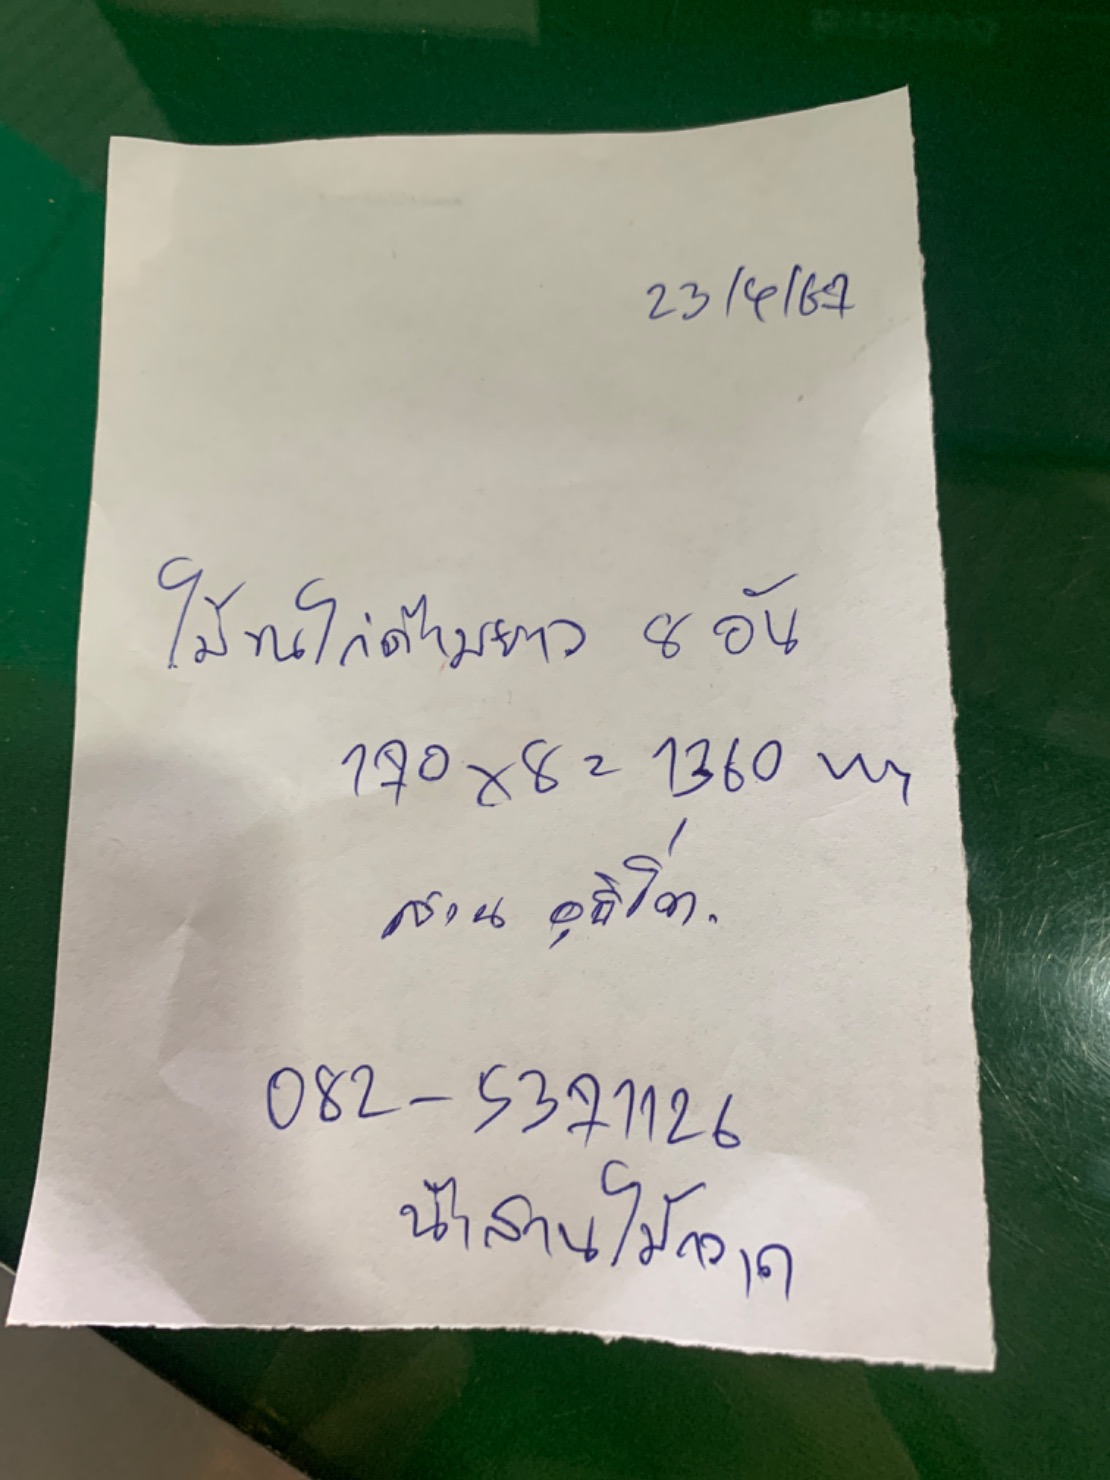 23/4/67
ไม้ขนไก่ด้ามยาว 8 อัน
170x8= 1360 บาท
สาน
082-5371126
น้าสานไม้กวาด